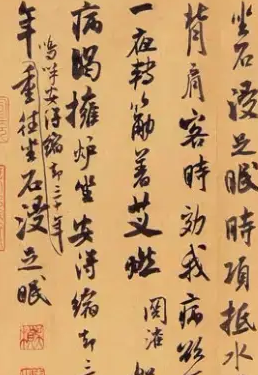 坐石浸足眠時項抵水
背肩客時効我病欲
一夜轉筋著艾
病暍擁爐坐安得縮却三
嗚呼安得縮却三十年
年重往坐石浸足眠